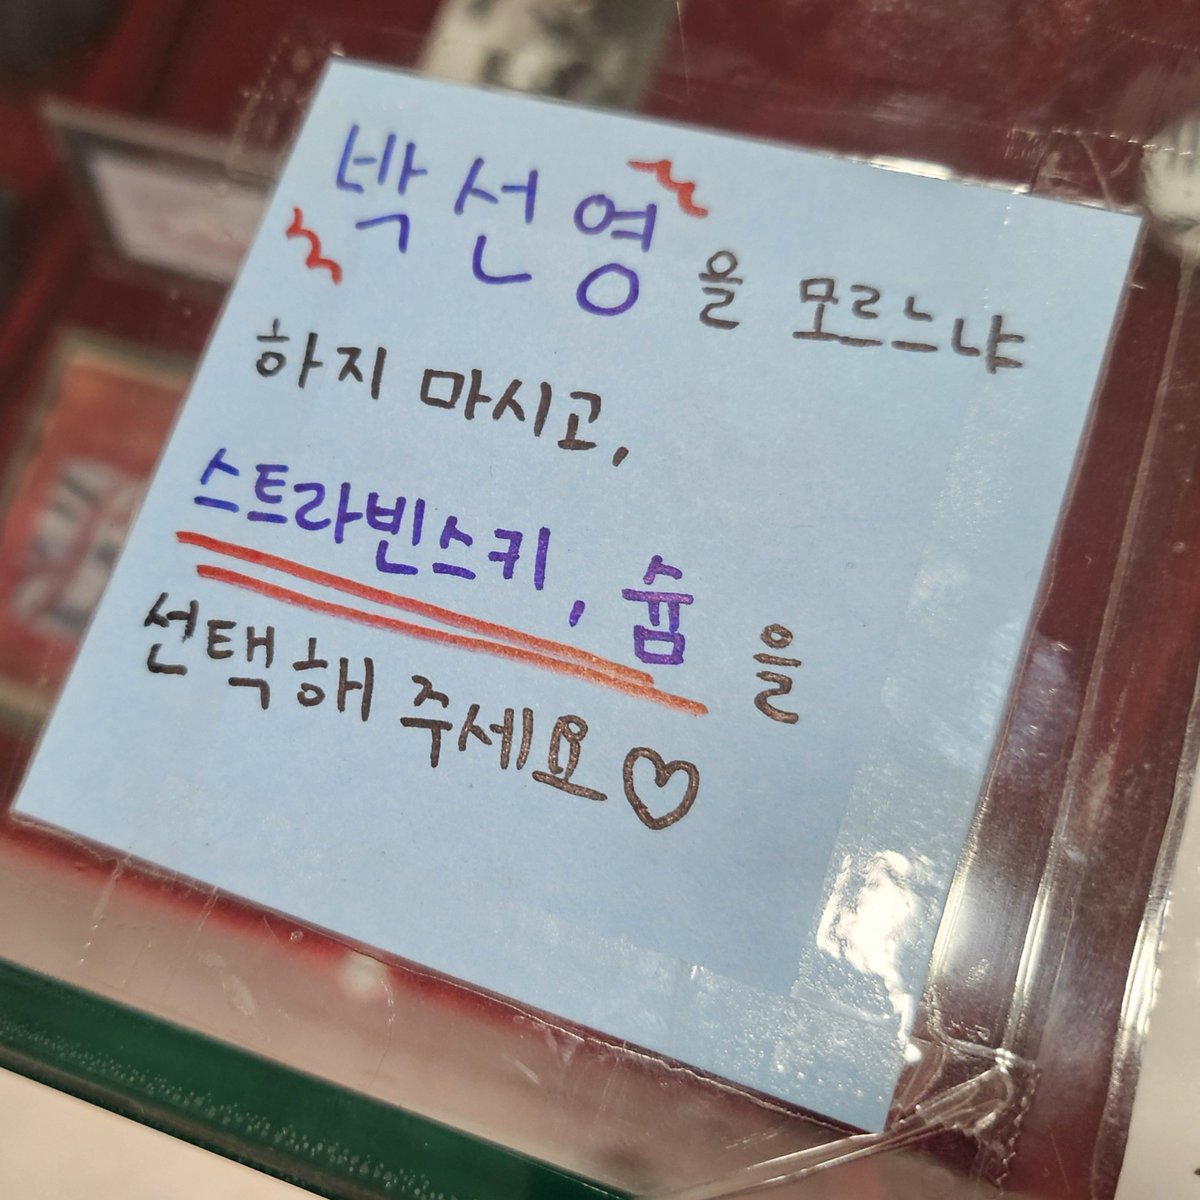 박선영을 모르느냐
하지 마시고,
스트라빈스키, 슘을
선택해 주세요♡